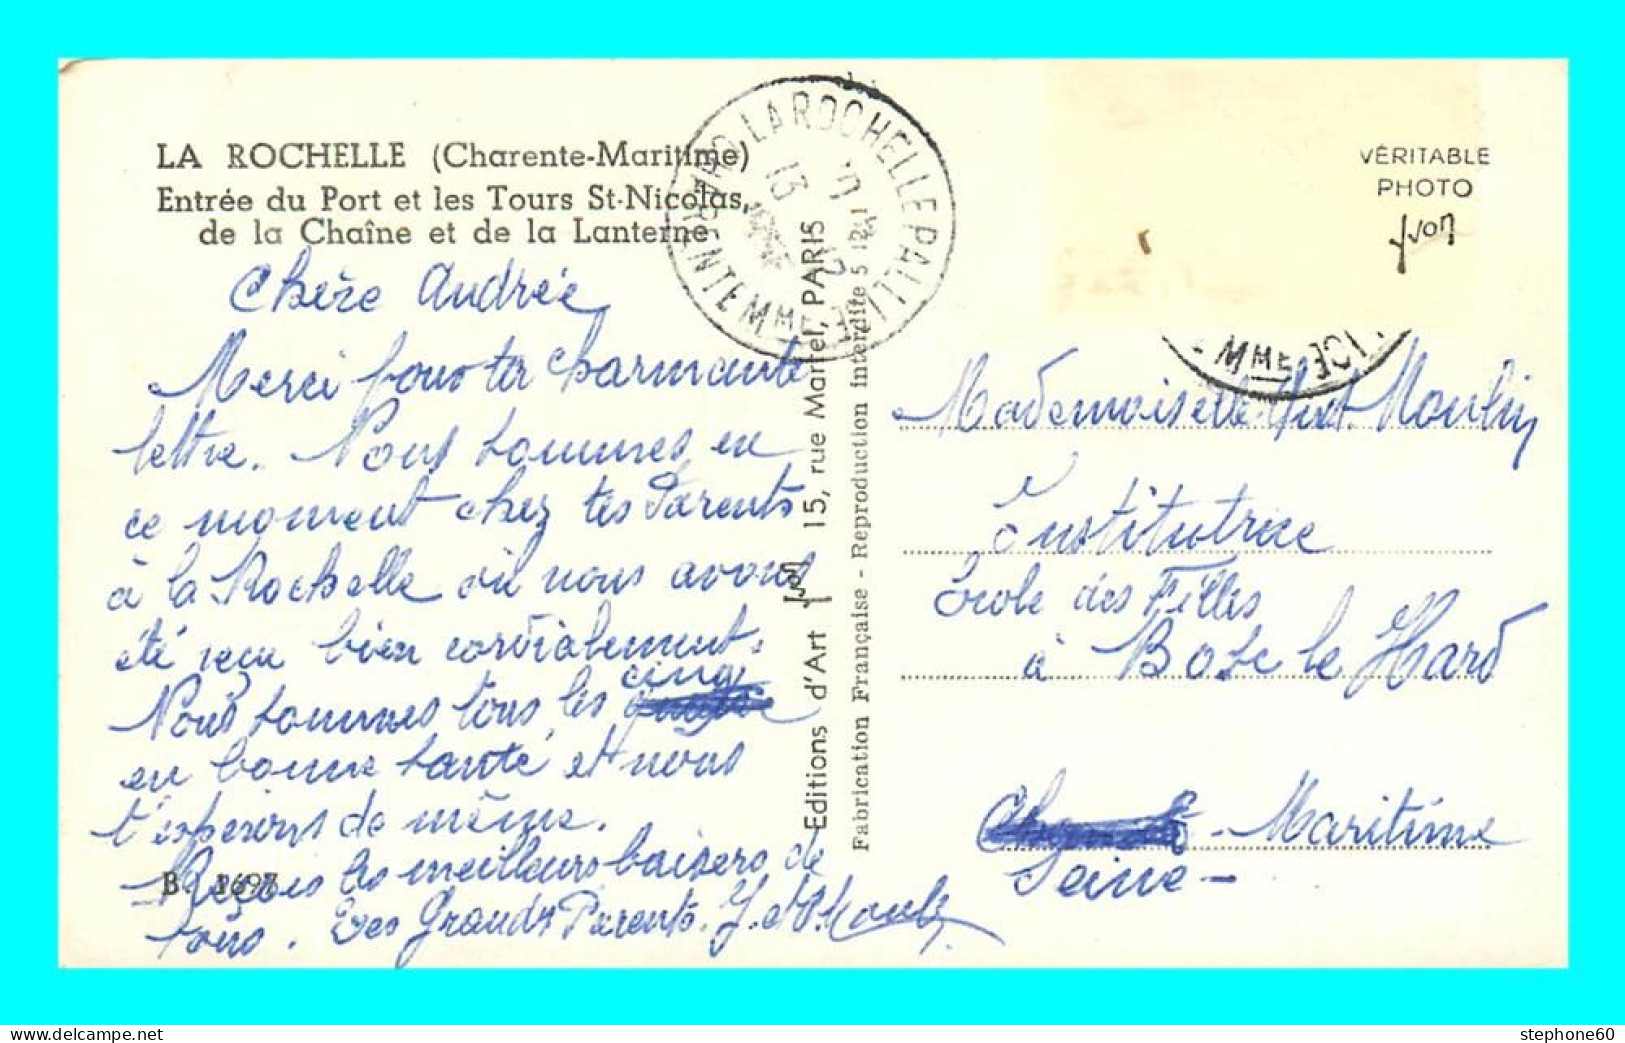 LA ROCHELLE (Charente-Maritime)
Entrée du Port et les Tours St-Nicolas,
de la Chaîne et de la Lanterne
Chère Andrée
Merci pour ta charmante
lettre. Nous sommes en
ce moment chez tes Parents
à la Rochelle où nous avons
été reçu bien cordialement.
Nous sommes tous les cinq
en bonne santé et nous
t'espérons de même.
Reçois les meilleurs baisers de
tous. Tes Grands Parents. J. et
B. 1697
LA ROCHELLE PALLICE
CHARENTE MME
13
Editions d'Art Yvon 15, rue Martel, PARIS
Fabrication Française - Reproduction interdite
VÉRITABLE
PHOTO
Yvon
MME ICE
Mademoiselle Moulin
Institutrice
École des Filles
à Bosc le Hard
Maritime
Seine -
stephone60